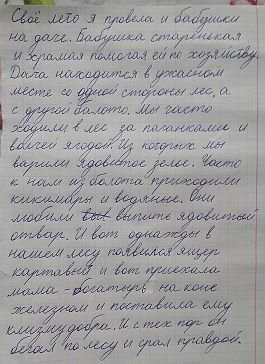 Своё лето я провела и бабушки
на даче. Бабушка старенькая
и храмая помогая ей по хозяйству.
Дача находится в ужасном
месте со одной стороны лес, а
с другой балото. Мы часто
ходили в лес за паганками и
волчей ягодой. Из когдрых мы
варили ядовитое зелье. Часто
к нам из балота приходили
кикимары и водяные. Они
любили выпить ядовитый
отвар. И вот однажды в
нашем лесу появился ящер
картавый и вот приехала
мама - богатырь на коне
железном и поставила ему
клизму добра. И с тех пор он
бегал по лесу и срал правдой.